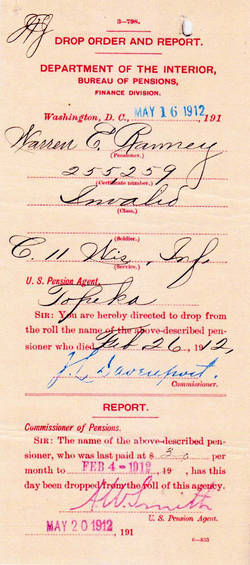 3—798.
DROP ORDER AND REPORT.
DEPARTMENT OF THE INTERIOR,
BUREAU OF PENSIONS,
FINANCE DIVISION.
Washington, D. C., MAY 16 1912, 191
Warren E. Ranney
(Pensioner.)
255259
(Certificate number.)
Invalid
(Class.)
(Soldier.)
C. 11 Wis. Inf
(Service.)
U. S. Pension Agent,
Topeka
SIR: You are hereby directed to drop from
the roll the name of the above-described pen-
sioner who died Feb 26, 1912,
J L Davenport
Commissioner.
REPORT.
Commissioner of Pensions.
SIR: The name of the above-described pen-
sioner, who was last paid at $ 30 per
month to FEB 4-1912, 19 , has this
day been dropped from the roll of this agency.
A. W. Smith
U. S. Pension Agent.
MAY 20 1912, 191
6—835